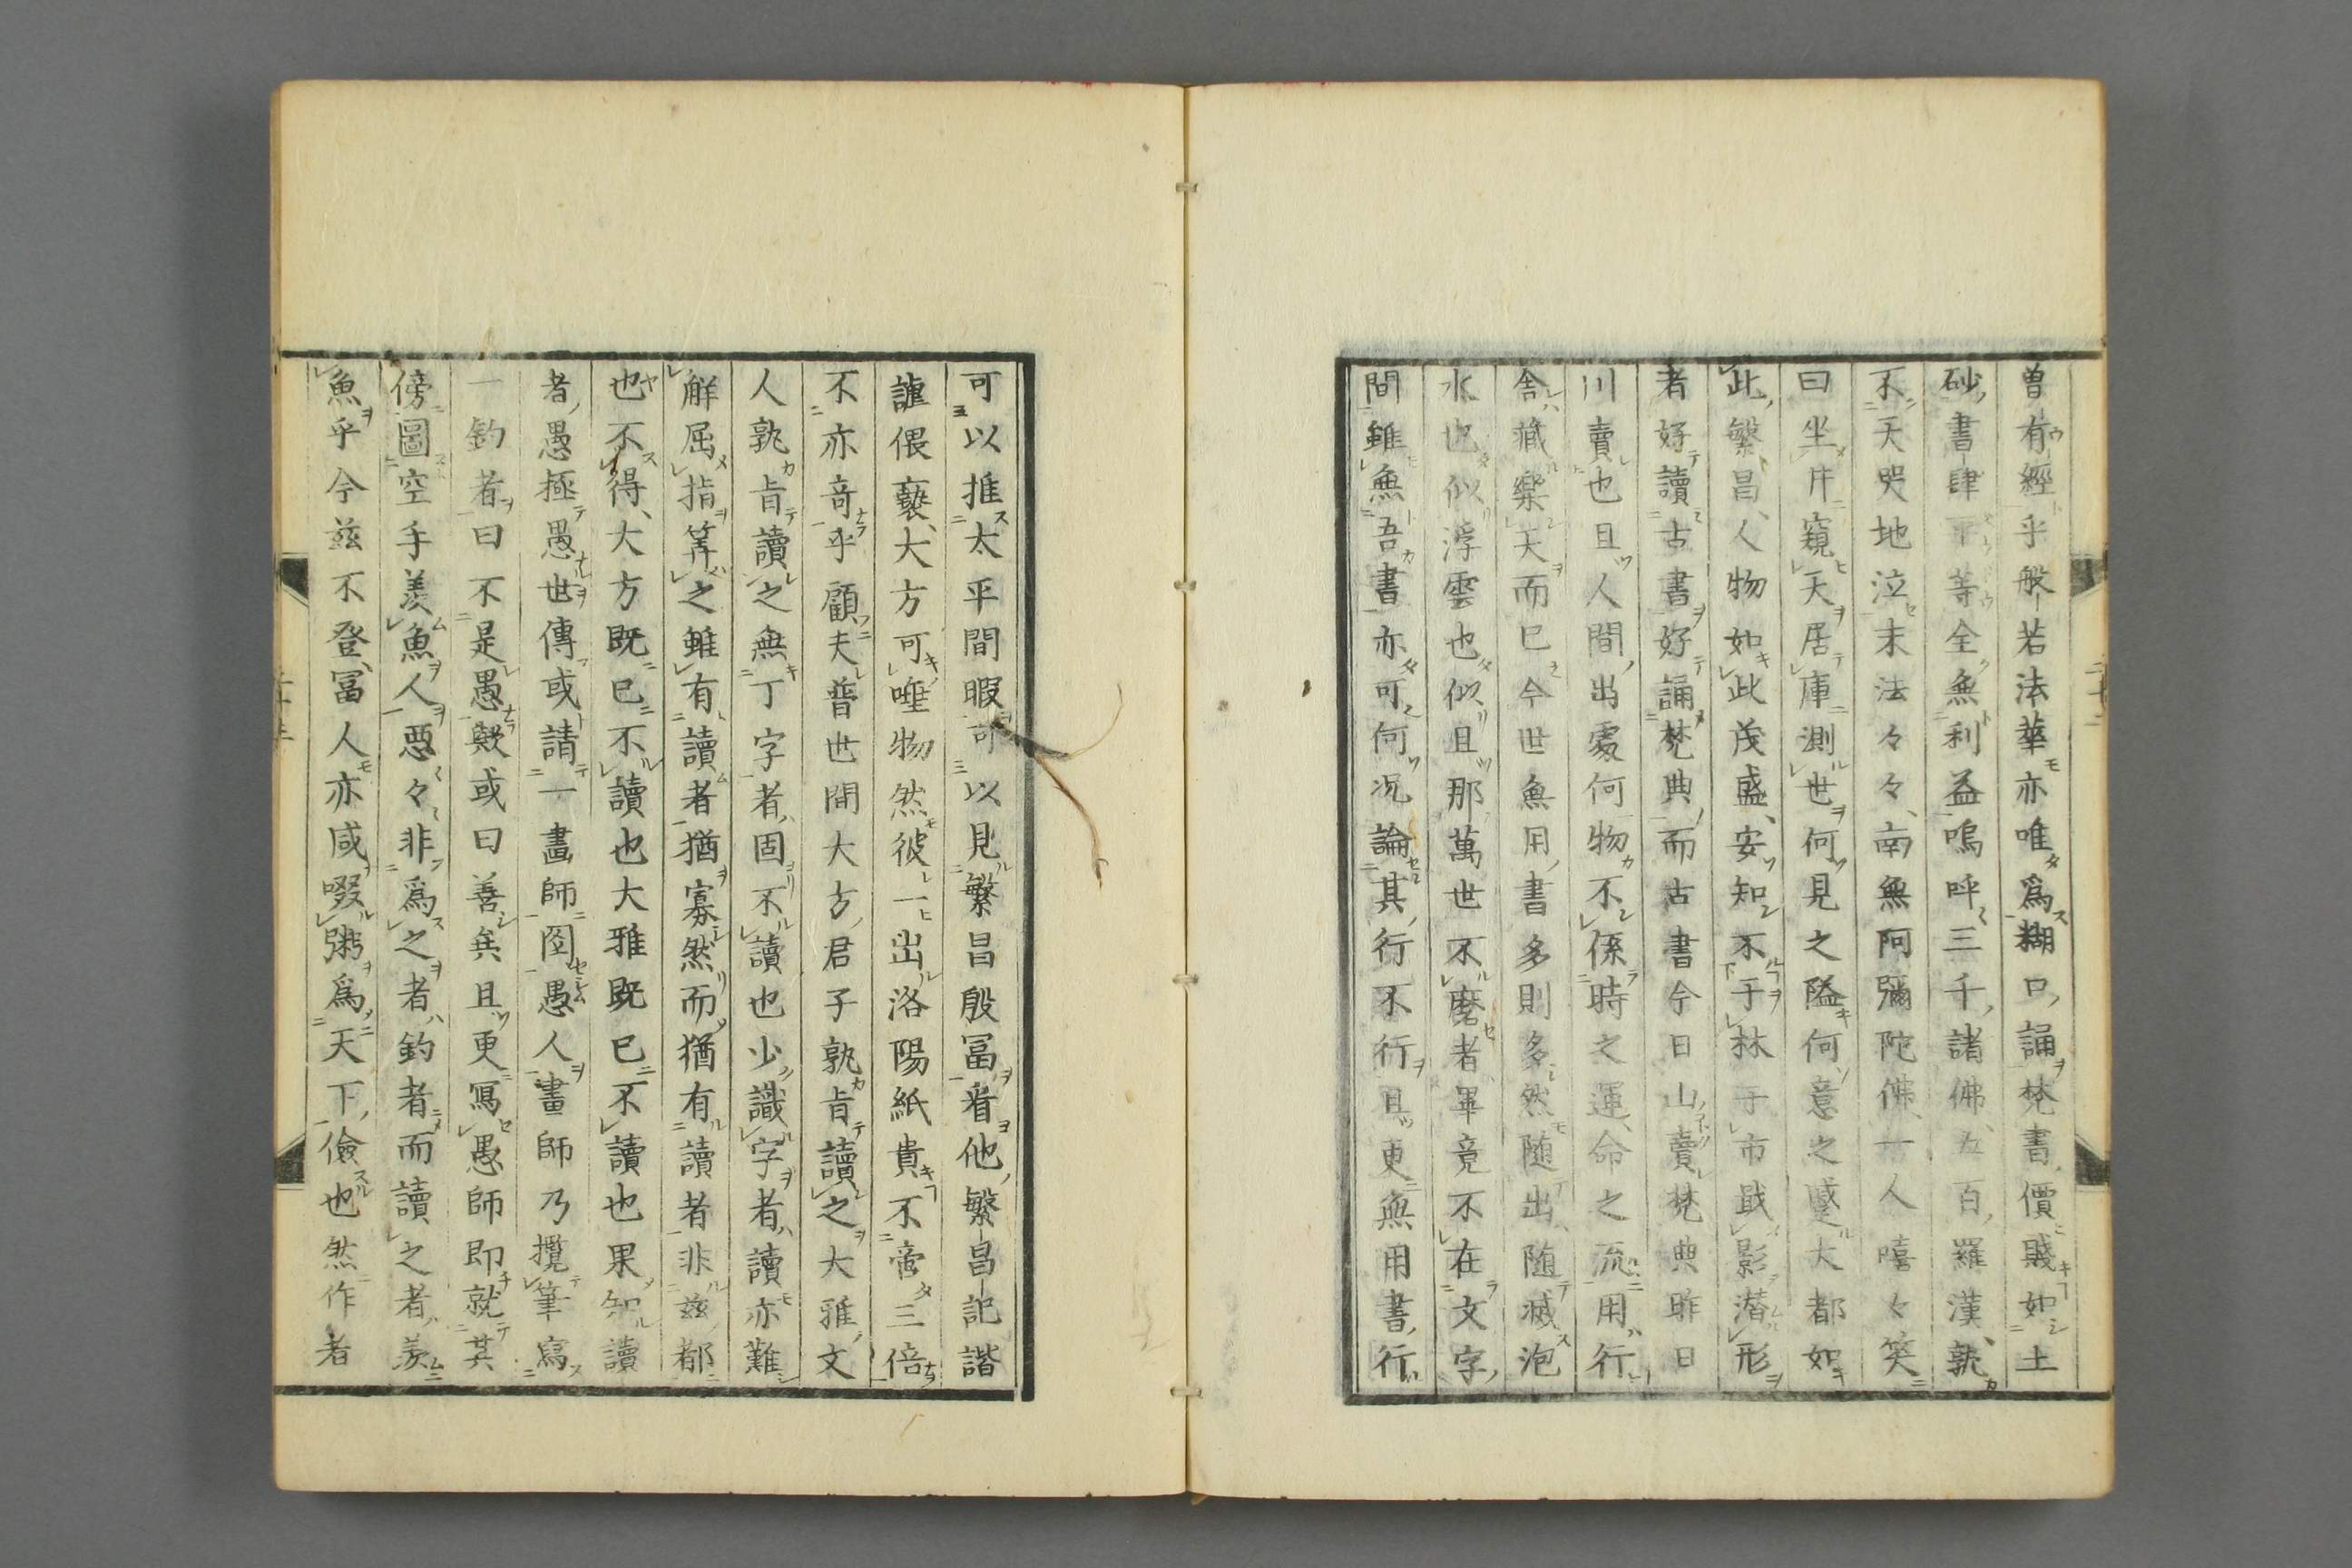 曽有經乎般若法華亦唯爲糊口誦梵書價賤如土
砂書肆平等全無利益嗚呼三千諸佛五百羅漢孰
不天哭地泣末法々々々南無阿彌陀佛一人嘻々笑
曰坐井窺天居庫測世何見之隘何意之蹙大都如
此繁昌人物如此茂盛安知不于林于市戢影潜形
者好讀古書好誦梵典而古書今日山賣梵典昨日
川賣也且人間出處何物不係時之運命之流用行
舎藏樂天而已今世無用書多則多然随出随滅泡
水也似浮雲也似且那萬世不磨者畢竟不在文字
間雖無吾書亦可何况論其行不行且更無用書行
可以推太平間暇可以見繁昌殷冨看他繁昌記諧
謔偎褻大方可唾物然彼一出洛陽紙貴不啻三倍
不亦竒乎顧夫普世間大方君子孰肯讀之大雅文
人孰肯讀之無丁字者固不讀也少識字者讀亦難
解屈指筭之雖有讀者猶寡然而猶有讀者非兹都
也不得大方既已不讀也大雅既已不讀也果知讀
者愚極愚世傳或請一畫師圖愚人畫師乃攬筆寫
一釣者曰不是愚歟或曰善矣且更寫愚師即就其
傍圖空手羨魚人惡々非爲之者釣者而讀之者羨
魚乎今兹不登冨人亦咸啜粥爲天下儉也然作者